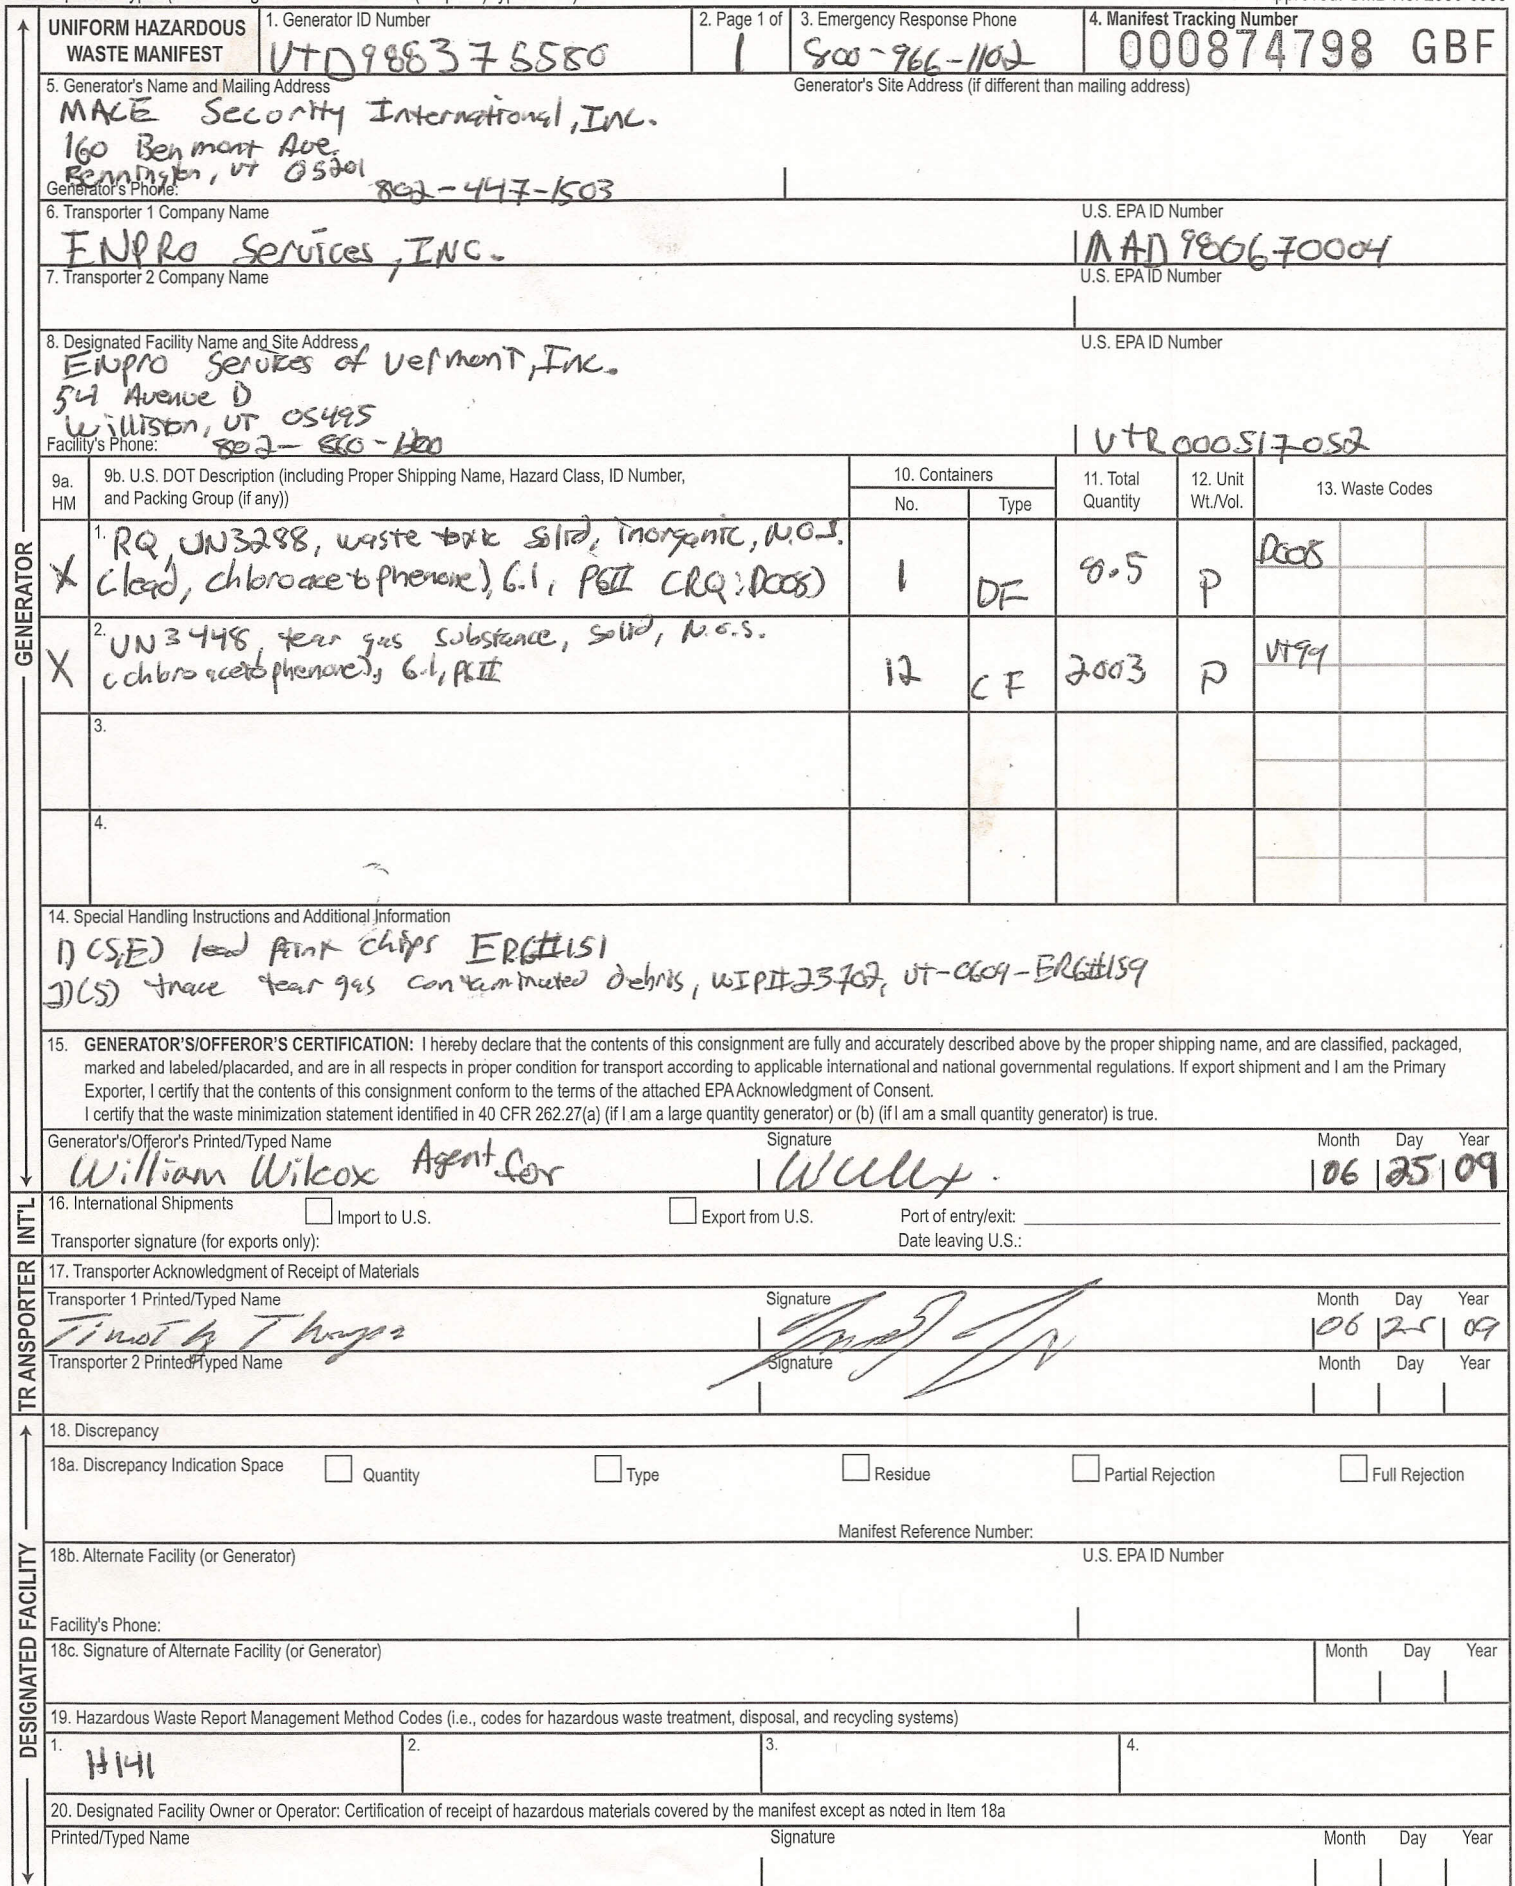 UNIFORM HAZARDOUS WASTE MANIFEST
1. Generator ID Number
VTD988375580
2. Page 1 of
1
3. Emergency Response Phone
800-966-1102
4. Manifest Tracking Number
000874798 GBF
5. Generator's Name and Mailing Address
Generator's Site Address (if different than mailing address)
MACE Security International, Inc.
160 Benmont Ave.
Bennington, VT 05201
Generator's Phone: 802-447-1503
6. Transporter 1 Company Name
U.S. EPA ID Number
ENPRO Services, INC.
MAD980670004
7. Transporter 2 Company Name
U.S. EPA ID Number
8. Designated Facility Name and Site Address
U.S. EPA ID Number
Enpro Services of Vermont, Inc.
54 Avenue D
Williston, VT 05495
Facility's Phone: 802-860-
VTR000517052
9a. HM
9b. U.S. DOT Description (including Proper Shipping Name, Hazard Class, ID Number,
and Packing Group (if any))
10. Containers
No.
Type
11. Total Quantity
12. Unit Wt./Vol.
13. Waste Codes
X
1. RQ, UN3288, waste toxic solid, inorganic, N.O.S.
(lead, chloroacetophenone), 6.1, PGII (RQ:D008)
1
DF
8.5
P
D008
X
2. UN3448, tear gas substance, solid, N.O.S.
(chloroacetophenone), 6.1, PGII
12
CF
2003
P
VT99
3.
4.
14. Special Handling Instructions and Additional Information
1) (S,E) lead paint chips ERG#151
2) (S) trace tear gas contaminated debris, WIP#23702, VT-0609-ERG#159
15. GENERATOR'S/OFFEROR'S CERTIFICATION: I hereby declare that the contents of this consignment are fully and accurately described above by the proper shipping name, and are classified, packaged,
marked and labeled/placarded, and are in all respects in proper condition for transport according to applicable international and national governmental regulations. If export shipment and I am the Primary
Exporter, I certify that the contents of this consignment conform to the terms of the attached EPA Acknowledgment of Consent.
I certify that the waste minimization statement identified in 40 CFR 262.27(a) (if I am a large quantity generator) or (b) (if I am a small quantity generator) is true.
Generator's/Offeror's Printed/Typed Name
Signature
Month Day Year
William Wilcox Agent for
06 25 09
16. International Shipments
Import to U.S.
Export from U.S.
Port of entry/exit:
Transporter signature (for exports only):
Date leaving U.S.:
17. Transporter Acknowledgment of Receipt of Materials
Transporter 1 Printed/Typed Name
Signature
Month Day Year
Timothy
06 25 09
Transporter 2 Printed/Typed Name
Signature
Month Day Year
18. Discrepancy
18a. Discrepancy Indication Space
Quantity
Type
Residue
Partial Rejection
Full Rejection
Manifest Reference Number:
18b. Alternate Facility (or Generator)
U.S. EPA ID Number
Facility's Phone:
18c. Signature of Alternate Facility (or Generator)
Month Day Year
19. Hazardous Waste Report Management Method Codes (i.e., codes for hazardous waste treatment, disposal, and recycling systems)
1. H141
2.
3.
4.
20. Designated Facility Owner or Operator: Certification of receipt of hazardous materials covered by the manifest except as noted in Item 18a
Printed/Typed Name
Signature
Month Day Year
GENERATOR
INT'L
TRANSPORTER
DESIGNATED FACILITY